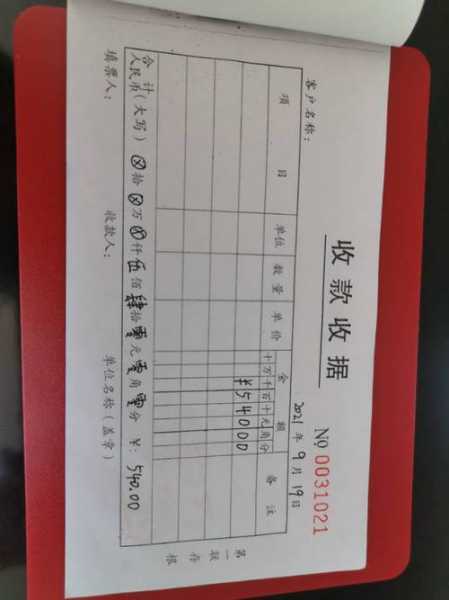 收款收据
№ 0031021
客户名称：
2021年9月19日
项 目 单位 数量 单价 金 额 备 注
十万千百十元角分
¥54000
合计人民币(大写) ⊗拾⊗万⊗仟伍佰肆拾零元零角零分 ¥: 540.00
填票人： 收款人： 单位名称(盖章)
第一联 存根